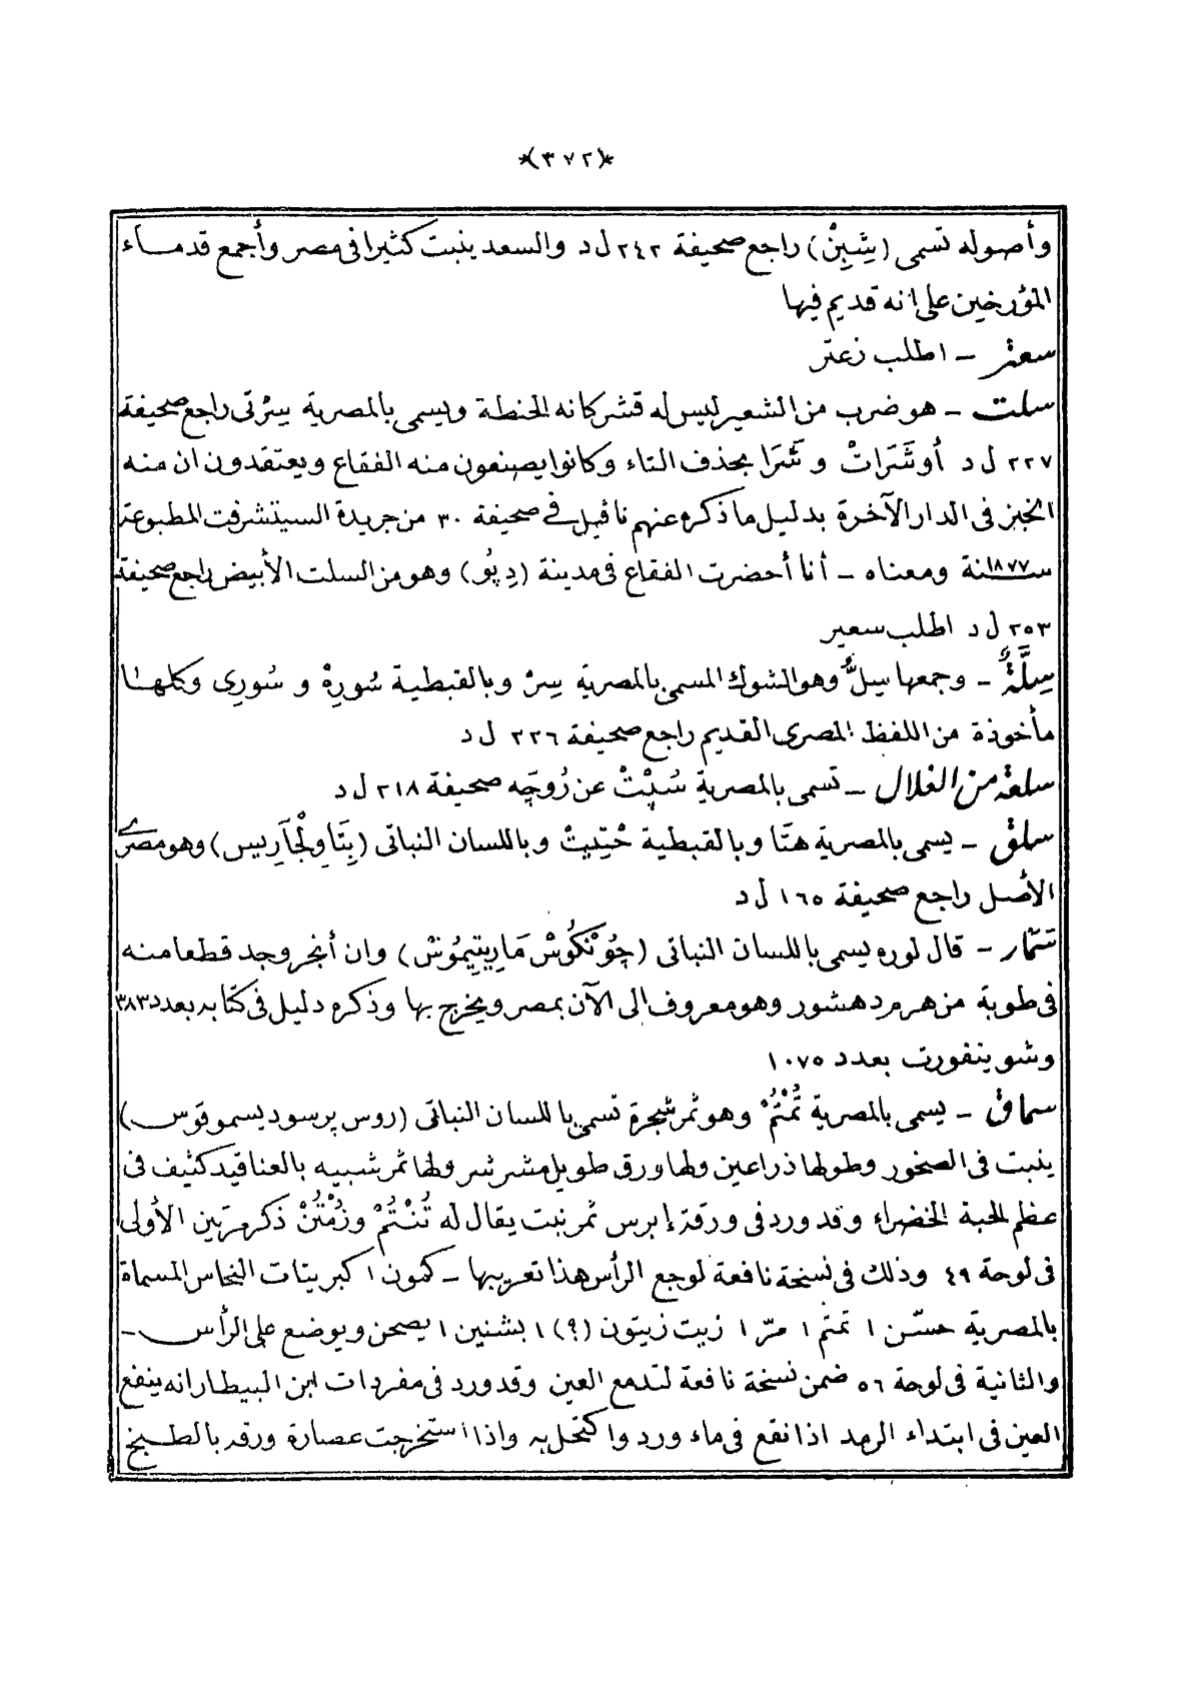 *(٣٧٢)*
وأصوله تسمى (شِبِنْ) راجع صحيفة ٢٤٢ ل د والسعد ينبت كثيرا فى مصر وأجمع قدماء
المؤرخين على انه قديم فيها
سعتر – اطلب زعتر
سلت – هو ضرب من الشعير ليس له قشر كانه الحنطة ويسمى بالمصرية سِرْتى راجع صحيفة
٢٢٧ ل د أو شَرَاتْ و شَرَا بحذف التاء وكانوا يصنعون منه الفقاع ويعتقدون ان منه
الخبز فى الدار الآخرة بدليل ما ذكره عنهم نافيل فى صحيفة ٣٠ من جريدة السيتشرفت المطبوعة
سنة ١٨٧٧ ومعناه – أنا أحضرت الفقاع فى مدينة (دِپُو) وهو من السلت الأبيض راجع صحيفة
٢٥٣ ل د اطلب سعير
سِلَّةٌ – وجمعها سِلٌّ وهو الشوك المسمى بالمصرية سِرْ وبالقبطية سُورِهْ و سُورِى وكلها
مأخوذة من اللفظ المصرى القديم راجع صحيفة ٢٢٦ ل د
سلعة من الغلال – تسمى بالمصرية سُپْتْ عن رُوجَه صحيفة ٢١٨ ل د
سلق – يسمى بالمصرية هتَا وبالقبطية خْتِيتْ وباللسان النباتى (بِتَا وِلْجَارِيس) وهو مصرى
الأصل راجع صحيفة ١٦٥ ل د
سَمَّار – قال لوره يسمى باللسان النباتى (جُوْنْكُوسْ مَارِيتِيمُوسْ) وان أنجر وجد قطعا منه
فى طوبة من هرم دهشور وهو معروف الى الآن بمصر ويخرج بها وذكره دليل فى كتابه بعدد ٣٨٣
وشوينفورت بعدد ١٠٧٥
سماق – يسمى بالمصرية تُمْتُمْ وهو ثمر شجرة تسمى باللسان النباتى (روس پرسود يسموقوس)
ينبت فى الصخور وطولها ذراعين ولها ورق طويل مشرشر ولها ثمر شبيه بالعناقيد كثيف فى
عظم الحبة الخضراء وقد ورد فى ورقة إبرس ثمر نبت يقال له تُنْتُمْ وزُمْتُنْ ذكر مرتين الأولى
فى لوحة ٤٩ وذلك فى نسخة نافعة لوجع الرأس هذا تعريبها – كمون ١ كبريتات النحاس المسماة
بالمصرية حسّن ١ تمتم ١ مرّ ١ زيت زيتون (؟) ١ بشنين ١ يصحن ويوضع على الرأس –
والثانية فى لوحة ٥٦ ضمن نسخة نافعة لتدمع العين وقد ورد فى مفردات ابن البيطار انه ينفع
العين فى ابتداء الرمد اذا نقع فى ماء ورد واكتحل به واذا استخرجت عصارة ورقه بالطبخ